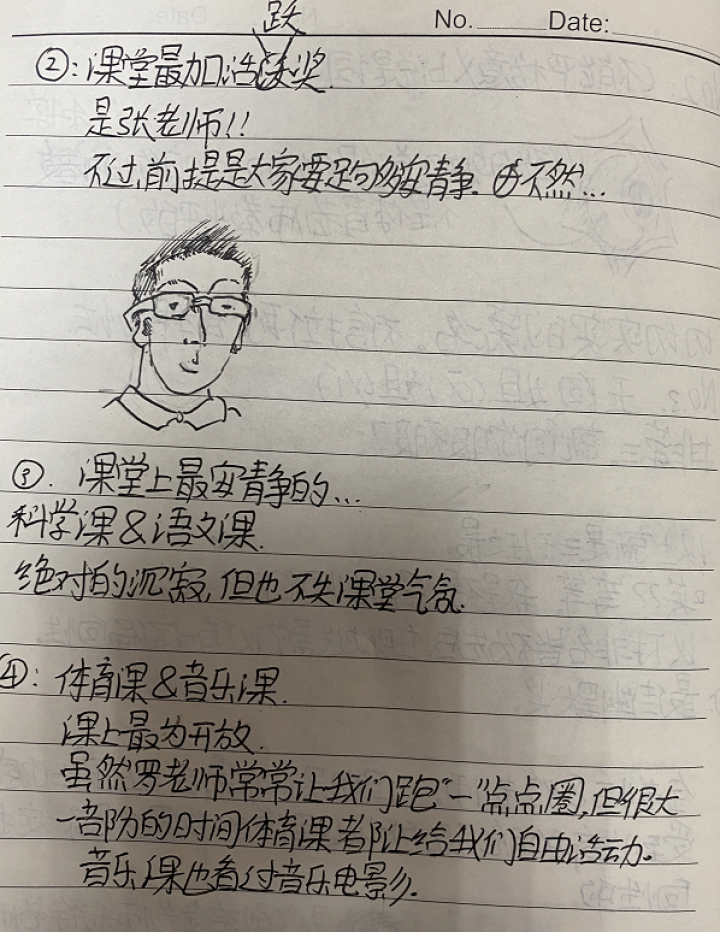 No. Date:
跃
②:课堂最加活奖
是张老师!!
不过,前提是大家要足够安静.不然…
③.课堂上最安静的…
科学课&语文课.
绝对的沉寂,但也不失课堂气氛.
④:体育课&音乐课.
课上最为开放.
虽然罗老师常常让我们跑“一”点点圈,但很大
一部分的时间体育课都让给我们自由活动.
音乐课也看过音乐电影.